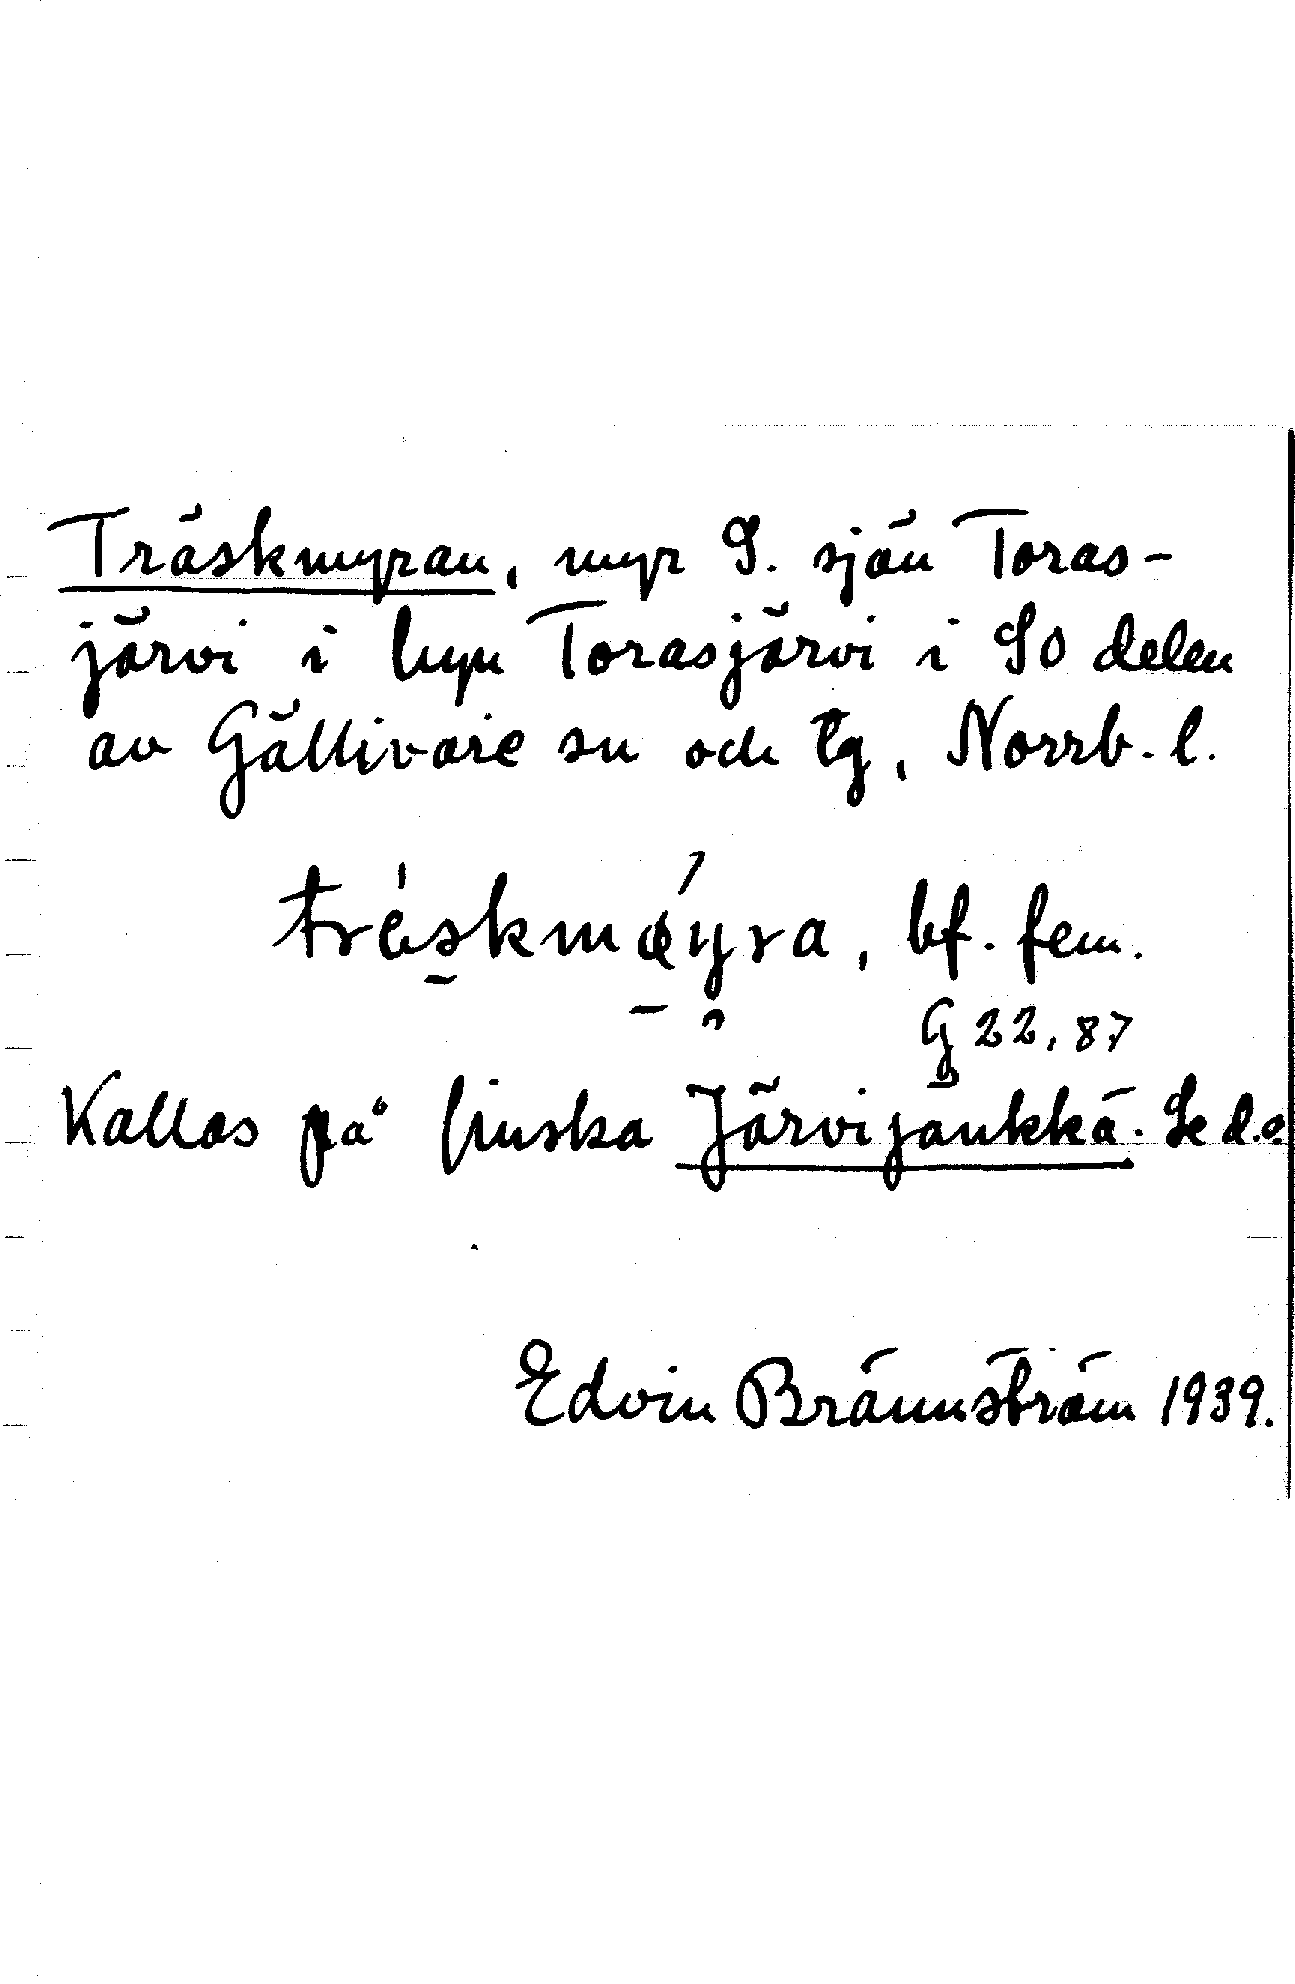 Träskmyran, myr S. sjön Toras-
järvi i byn Torasjärvi i SO delen
av Gällivare sn och tg, Norrb. l.
bf. fem.
G 22, 87
Kallas på finska Järvijänkkä. Se d.o.
Edvin Brännström 1939.